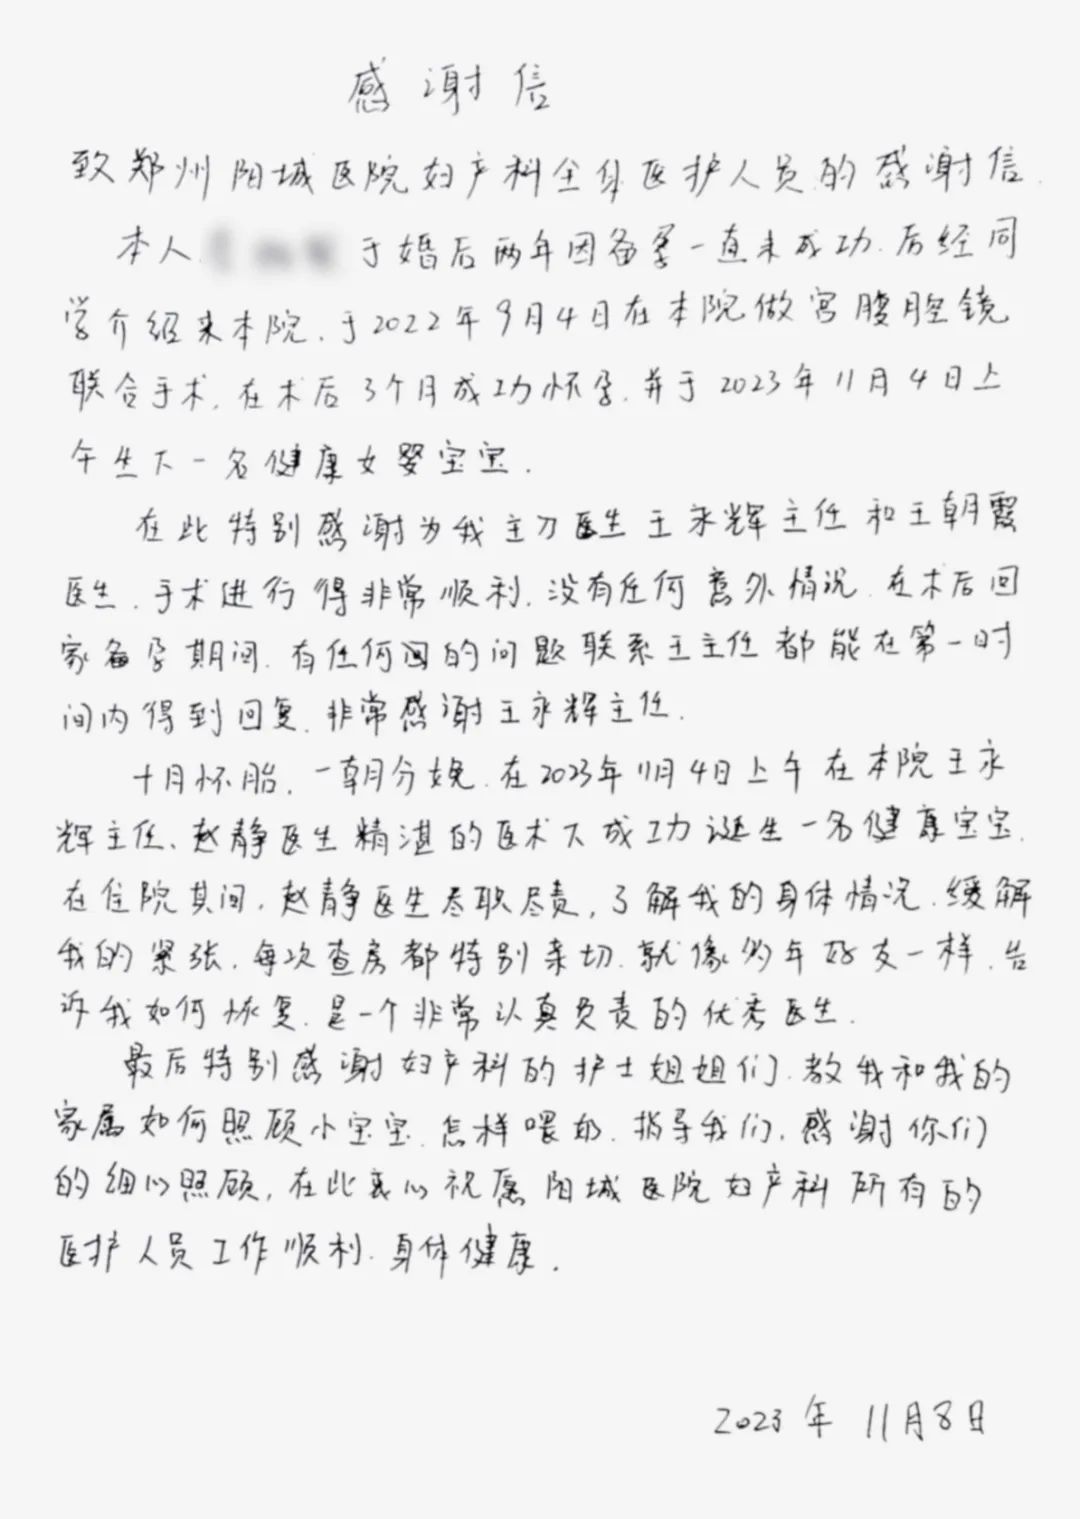 感谢信
致郑州阳城医院妇产科全体医护人员的感谢信.
本人 于婚后两年因备孕一直未成功.后经同
学介绍来本院.于2022年9月4日在本院做宫腹腔镜
联合手术.在术后3个月成功怀孕.并于2023年11月4日上
午生下一名健康女婴宝宝.
在此特别感谢为我主刀医生王永辉主任和王朝霞
医生.手术进行得非常顺利.没有任何意外情况.在术后回
家备孕期间.有任何的问题联系王主任都能在第一时
间内得到回复.非常感谢王永辉主任.
十月怀胎.一朝分娩.在2023年11月4日上午在本院王永
辉主任、赵静医生精湛的医术下成功诞生一名健康宝宝.
在住院其间.赵静医生尽职尽责,了解我的身体情况.缓解
我的紧张.每次查房都特别亲切.就像多年好友一样.告
诉我如何恢复.是一个非常认真负责的优秀医生.
最后特别感谢妇产科的护士姐姐们.教我和我的
家属如何照顾小宝宝.怎样喂奶.指导我们.感谢你们
的细心照顾,在此衷心祝愿阳城医院妇产科所有的
医护人员工作顺利.身体健康.
2023年11月8日